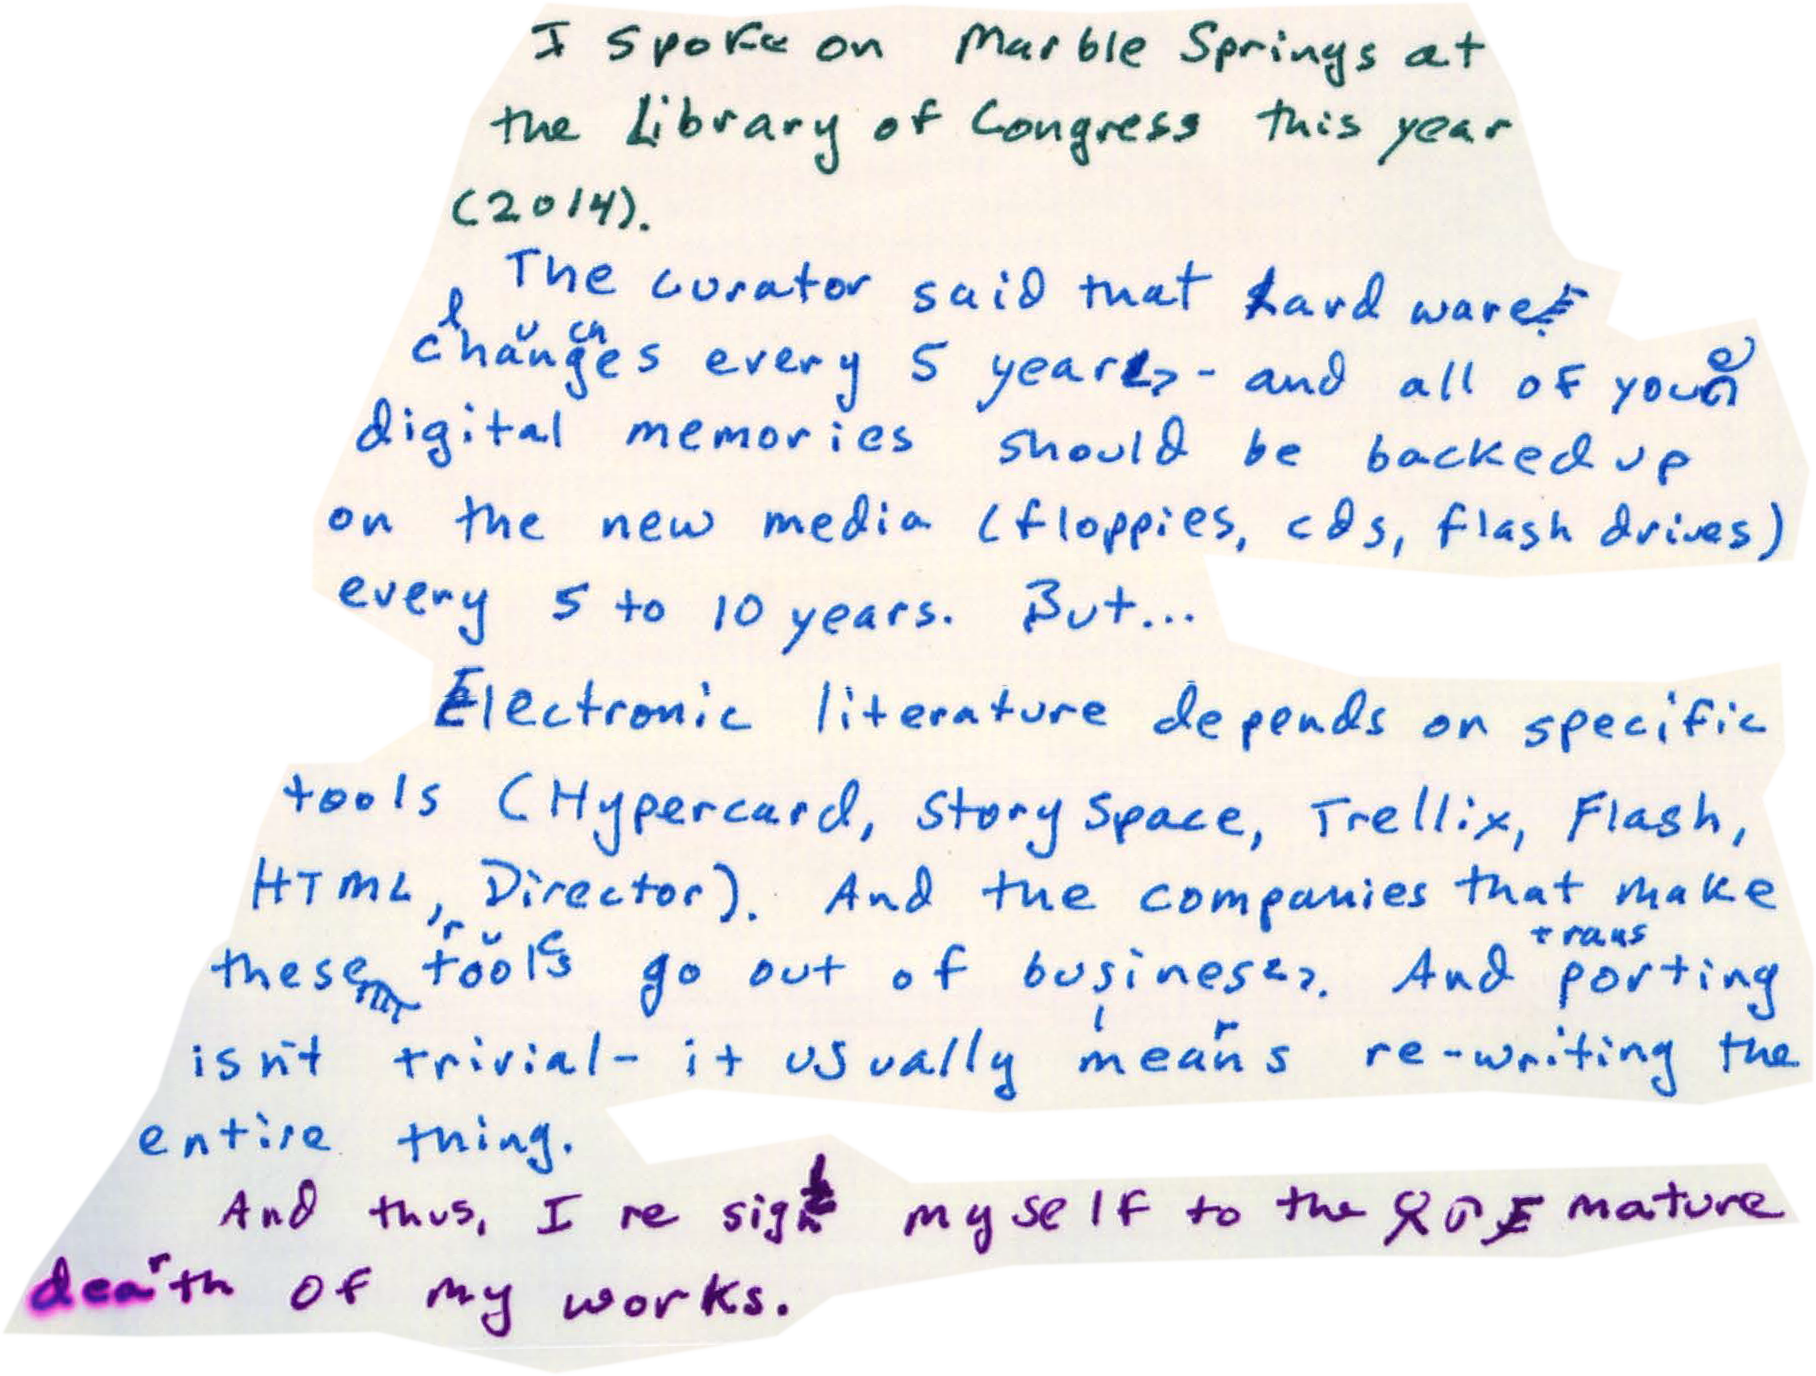 I spoke on Marble Springs at
the Library of Congress this year
(2014).
The curator said that hardware
changes every 5 years - and all of your
digital memories should be backed up
on the new media (floppies, cds, flash drives)
every 5 to 10 years. But...
Electronic literature depends on specific
tools (Hypercard, StorySpace, Trellix, Flash,
HTML, Director). And the companies that make
these tools go out of business. And
trans
porting
isn't trivial - it usually means re-writing the
entire thing.
And thus, I re sign myself to the mature
death of my works.